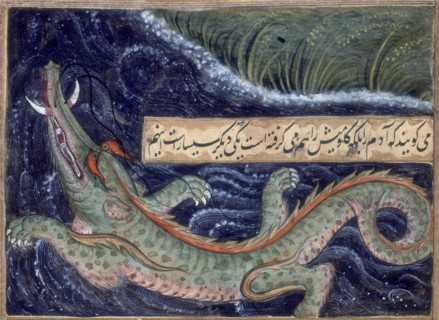 می کویند که آدم را بلکه کاومیش را هم می کرفته است یکی دیکر سیسارست اینهم